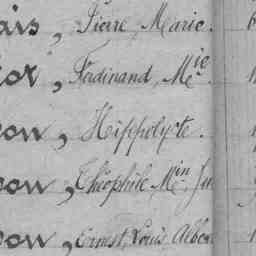 ais, Pierre, Marie.
ot, Ferdinand, Mie
on, Hippolyte.
on, Théophile, Min, Ju
on, Ernest, Louis, Albe